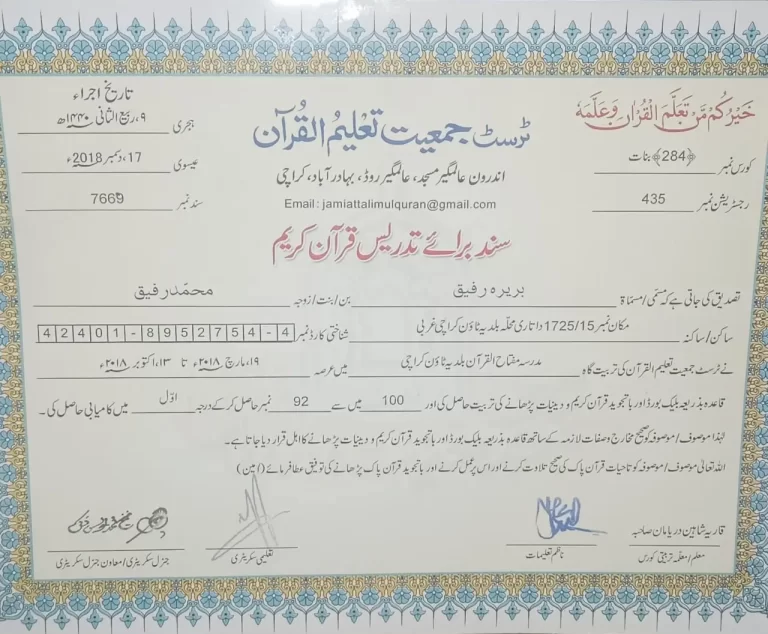 خَيْرُكُمْ مَّنْ تَعَلَّمَ الْقُرْاٰنَ وَعَلَّمَهٗ
کورس نمبر ﴿284﴾ بنات
رجسٹریشن نمبر 435
ٹرسٹ جمعیت تعلیمُ القُرآن
اندرون عالمگیر مسجد، عالمگیر روڈ، بہادر آباد، کراچی
Email : jamiattalimulquran@gmail.com
تاریخ اجراء
ہجری ۹، ربیع الثانی ۱۴۴۰ھ
عیسوی 17، دسمبر 2018ء
سند نمبر 7669
سند برائے تدریس قرآن کریم
تصدیق کی جاتی ہے کہ مسمّٰی/مسمّاۃ بریرہ رفیق بن/بنت/زوجہ محمّد رفیق
ساکن/ساکنہ مکان نمبر 1725/15 داتاری محلّہ بلدیہ ٹاؤن کراچی غربی شناختی کارڈ نمبر 42401-8952754-4
نے ٹرسٹ جمعیت تعلیم القرآن کی تربیت گاہ مدرسہ مفتاح القرآن بلدیہ ٹاؤن کراچی میں عرصہ ۱۹، مارچ ۲۰۱۸ء تا ۱۳، اکتوبر ۲۰۱۸ء
قاعدہ بذریعہ بلیک بورڈ اور باتجوید قرآن کریم و دینیات پڑھانے کی تربیت حاصل کی اور 100 میں سے 92 نمبر حاصل کر کے درجہ اوّل میں کامیابی حاصل کی۔
لہٰذا موصوف/موصوفہ کو صحیح مخارج و صفات لازمہ کے ساتھ قاعدہ بذریعہ بلیک بورڈ اور باتجوید قرآن کریم و دینیات پڑھانے کا اہل قرار دیا جاتا ہے۔
اللہ تعالیٰ موصوف/موصوفہ کو تاحیات قرآن پاک کی صحیح تلاوت کرنے اور اس پر عمل کرنے اور باتجوید قرآن پاک پڑھانے کی توفیق عطا فرمائے (آمین)
قاریہ شاہین دریامان صاحبہ
معلم/معلمہ تربیتی کورس
ناظم تعلیمات
تعلیمی سکریٹری
جنرل سکریٹری/معاون جنرل سکریٹری